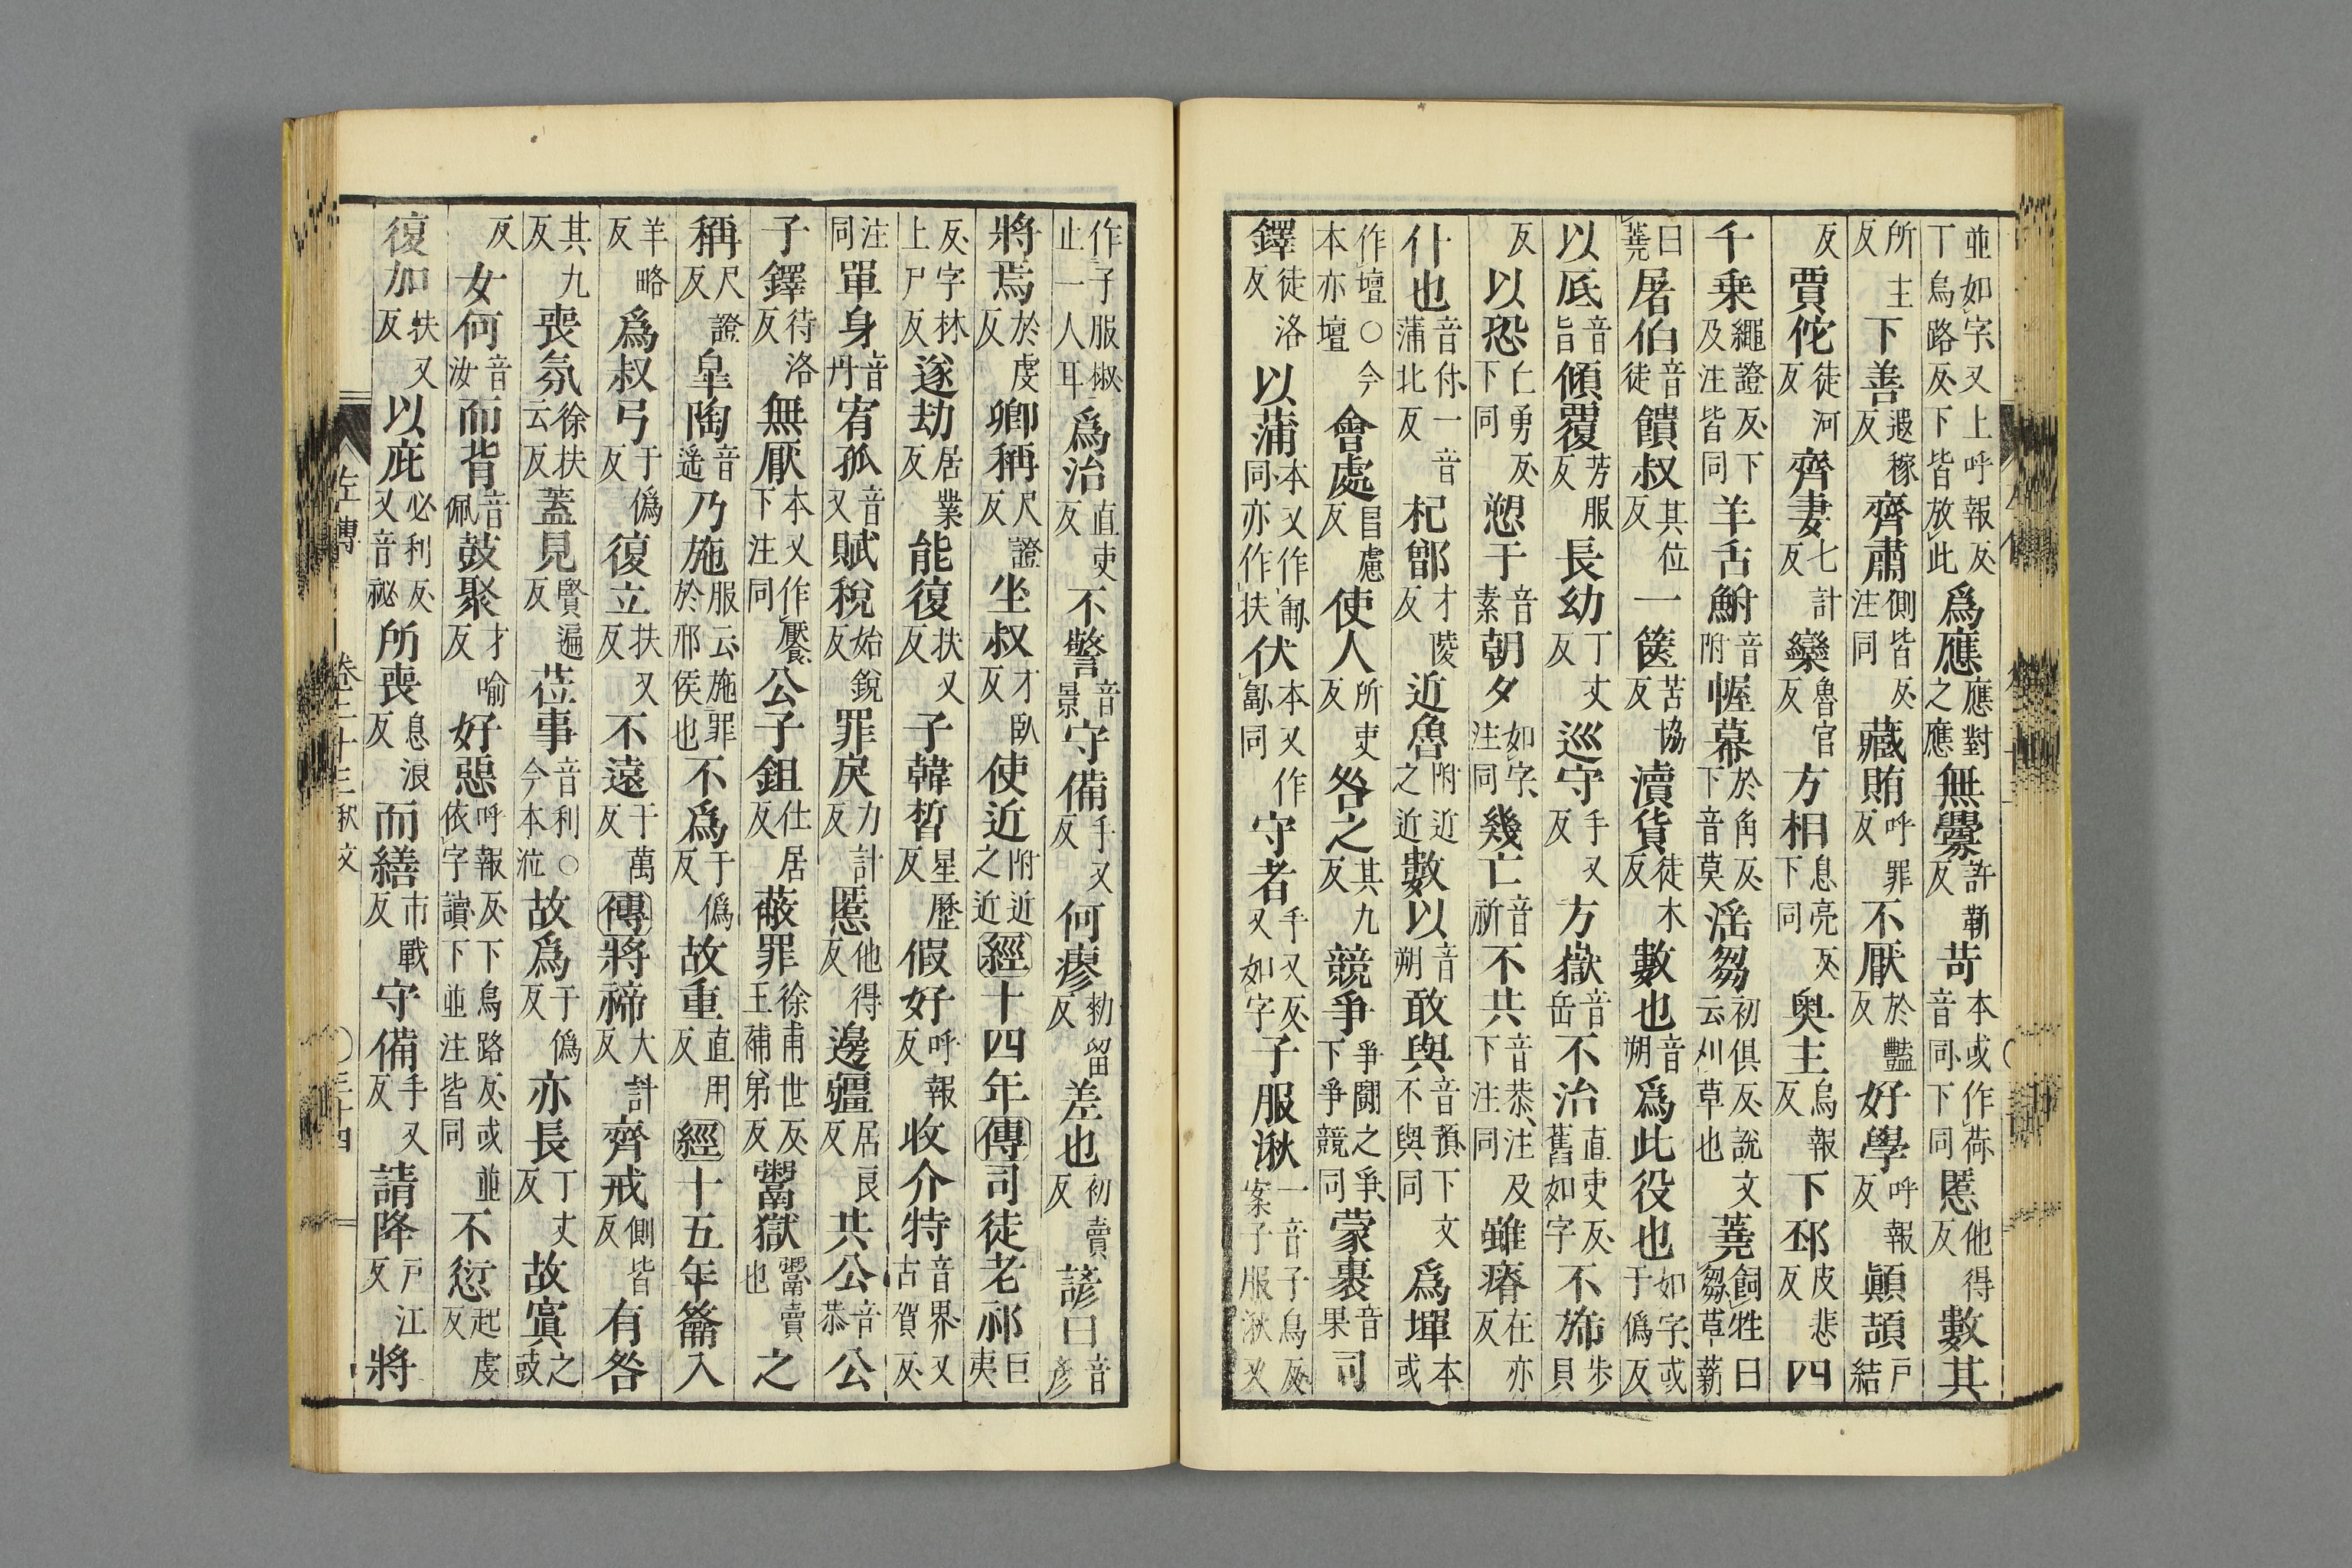 並如字又上呼報反丁烏路反下皆放此爲應應對之應無釁許靳反苛本或作荷音同下同慝他得反數其
所主反下善遐稼反齊肅側皆反注同藏賄呼罪反不厭於豔反好學呼報反顚頡戶結
反賈佗徒河反齊妻七計反欒魯官反方相息亮反下同奥主烏報反下邳皮悲反四
千乗繩證反下及注皆同羊舌鮒音附幄幕於角反下音莫淫芻初俱反說文云刈草也蕘飼牲曰芻草薪
曰蕘屠伯音徒饋叔其位反一篋苦協反瀆貨徒木反數也音朔爲此役也如字或于僞反
以底音旨傾覆芳服反長幼丁丈反巡守手又反方嶽音岳不治直吏反舊如字不斾步貝
反以恐亡勇反下同愬于音素朝夕如字注同幾亡音祈不共音恭注及下注同雖瘠在亦反
什也音仆一音蒲北反杞鄫才陵反近魯附近之近數以音朔敢與音預下文不與同爲墠本或
作壇○今本亦壇會處昌慮反使人所吏反咎之其九反競爭爭鬭之爭下爭競同蒙裹音果司
鐸徒洛反以蒲本又作匍同亦作扶伏本又作匐同守者手又反又如字子服湫一音子鳥反案子服湫又
作子服椒止一人耳爲治直吏反不警音景守備手又反何瘳勑留反差也初賣反諺曰音彥
將焉於虔反卿稱尺證反坐叔才臥反使近附近之近經十四年傳司徒老祁巨夷
反字林上尸反遂劫居業反能復扶又反子韓晳星歷反假好呼報反收介特音界又古賀反
注同單身音丹宥孤音又賦稅始銳反罪戾力計反慝他得反邊疆居良反共公音恭公
子鐸待洛反無厭本又作饜下注同公子鉏仕居反蔽罪徐甫世反王補弟反鬻獄鬻賣也之
稱尺證反皐陶音遙乃施服云施罪於邢侯也不爲于僞反故重直用反經十五年籥入
羊略反爲叔弓于僞反復立扶又反不遠于萬反傳將禘大計反齊戒側皆反有咎
其九反喪氛徐扶云反蓋見賢遍反莅事音利○今本涖故爲于僞反亦長丁丈反故寘之豉
反女何音汝而背音佩鼓聚才喻反好惡呼報反下烏路反或並依字讀下並注皆同不愆起虔反
復加扶又反以庇必利反又音祕所喪息浪反而繕市戰反守備手又反請降戶江反將
左傳 卷二十三 秋文 三十四